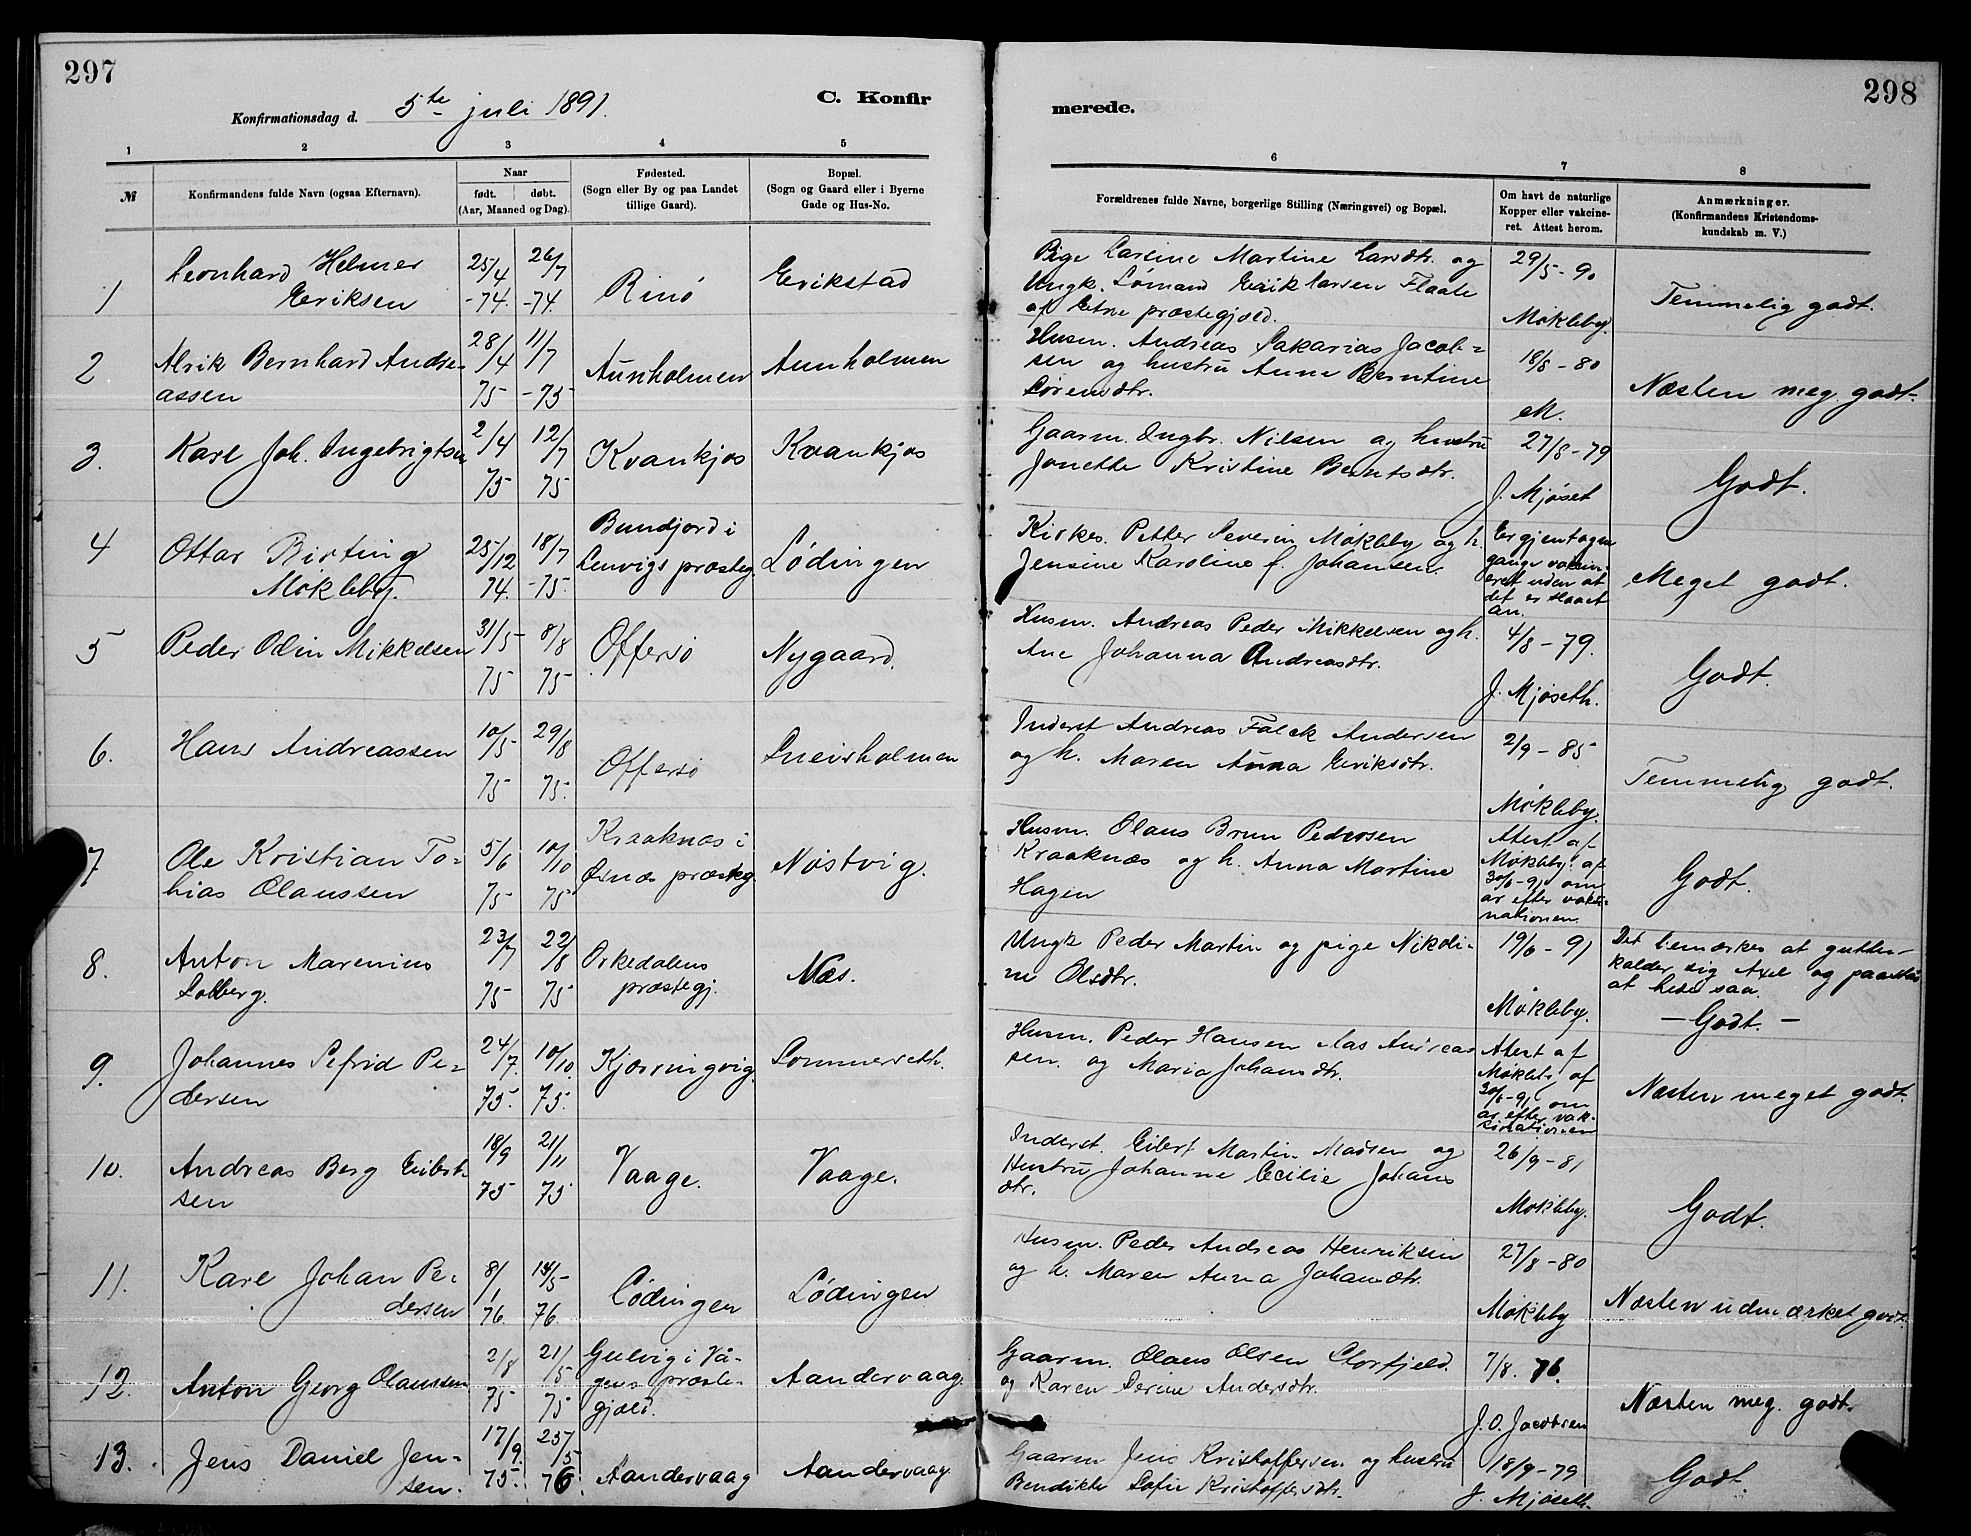 297
Konfirmationsdag d. 5te juli 1891.
C. Konfir
merede.
298
1 2 3 4 5 6 7 8
№
Konfirmandens fulde Navn (ogsaa Efternavn).
Naar
født. døbt.
(Aar, Maaned og Dag).
Fødested.
(Sogn eller By og paa Landet
tillige Gaard).
Bopæl.
(Sogn og Gaard eller i Byerne
Gade og Hus-No.
Forældrenes fulde Navne, borgerlige Stilling (Næringsvei) og Bopæl.
Om havt de naturlige
Kopper eller vakcine-
ret. Attest herom.
Anmærkninger.
(Konfirmandens Kristendoms-
kundskab m. V.)
1 Leonhard Helmer
Eriksen
25/4 -74. 26/7 -74.
Rinø
Erikstad
Pige Larsine Martine Larsdtr. og
Ungk. Lørnard Erik Larsen Flaate
af Etne præstegjæld.
29/5-90
Møkleby.
Temmelig godt.
2 Alrik Bernhard Andre-
assen
28/4 75 11/7 -75
Aunholmen
Aunholmen
Husm. Andreas Sakarias Jacob-
sen og hustru Anne Berntine
Sørensdtr.
18/8-80
M.
Næsten meg. godt.
3. Karl Joh. Ingebrigtsen
2/4 75 12/7 75
Kvankjos
Kvankjos
Gaarm. Ingbr. Nilsen og hustru
Jonette Kristine Berntsdtr.
27/8-79
J. Mjøset
Godt.
4 Ottar Birting
Møkleby.
25/12 74. 18/7 -75.
Bundjord i
Lenvigs præsteg.
Lødingen
Kirkes. Petter Severin Møkleby og h.
Jensine Karoline f. Johansen.
Er gjentagne
gange vakcin-
eret uden at
det er slaaet
an.
Meget godt.
5 Peder Odin Mikkelsen
31/5 75 8/8 75
Offersø
Nygaard.
Husm. Andreas Peder Mikkelsen og h.
Ane Johanna Andreasdtr.
4/8-79.
J. Mjøseth.
Godt.
6. Hans Andreassen
10/5 75 29/8 75.
Offersø
Sneisholmen
Inderst Andreas Falck Andersen
og h. Maren Anna Eriksdtr.
2/9-85
Møkleby.
Temmelig godt.
7 Ole Kristian To-
bias Olaussen
5/6 75 10/10 75
Kraaknæs i
Øsnæs præsteg.
Nøstvig.
Husm. Olaus Brun Pedersen
Kraaknæs og h. Anna Martine
Hagen
Attest af
Møkleby af
30/6-91 om
ar efter vakci-
nationen
Godt.
8. Anton Marenius
Solberg.
23/7 75 22/8 75
Orkedalens
præstegj.
Næs.
Ungk Peder Martin og pige Nikoli-
ne Olsdtr.
19/6-91
Møkleby.
Det bemærkes at gutten
kalder sig Axel og paastaar
at hede saa.
- Godt. -
9. Johannes Sefrid Pe-
dersen
24/7. 75. 10/10. 75.
Kjærringvig.
Sommerseth.
Husm. Peder Hansen Aas Andreas
sen. og Maria Johansdtr.
Attest af
Møkleby af
30/6-91 om
ar efter vak-
sinationen
Næsten meget godt.
10. Andreas Berg Eilert-
sen
18/9 75 21/11 75
Vaage.
Vaage.
Inderst. Eilert Martin Madsen og
Hustru Johanne Cecilie Johans
dtr.
26/9-81
Møkleby.
Godt.
11. Karl Johan Pe-
dersen
8/1 76. 14/5 76
Lødingen
Lødingen
Husm. Peder Andreas Henriksen
og h. Maren Anna Johansdtr.
27/8-80
Møkleby
Næsten udmærket godt.
12. Anton Georg Olaussen
2/8 75 21/5 75
Gulvig i Vå-
gens præste-
gjæld.
Aandervaag.
Gaarm. Olaus Olsen Storfjeld.
og Karen Serine Andersdtr.
7/8. 76.
J. O. Jacobsen
Næsten meg. godt.
13. Jens Daniel Jen-
sen.
17/9. 75. 25/5 76.
Aandervaag
Aandervaag.
Gaarm Jens Kristoffersen og hustru
Bendikte Sofie Kristoffersdtr.
18/9-79
J. Mjøseth.
Godt.